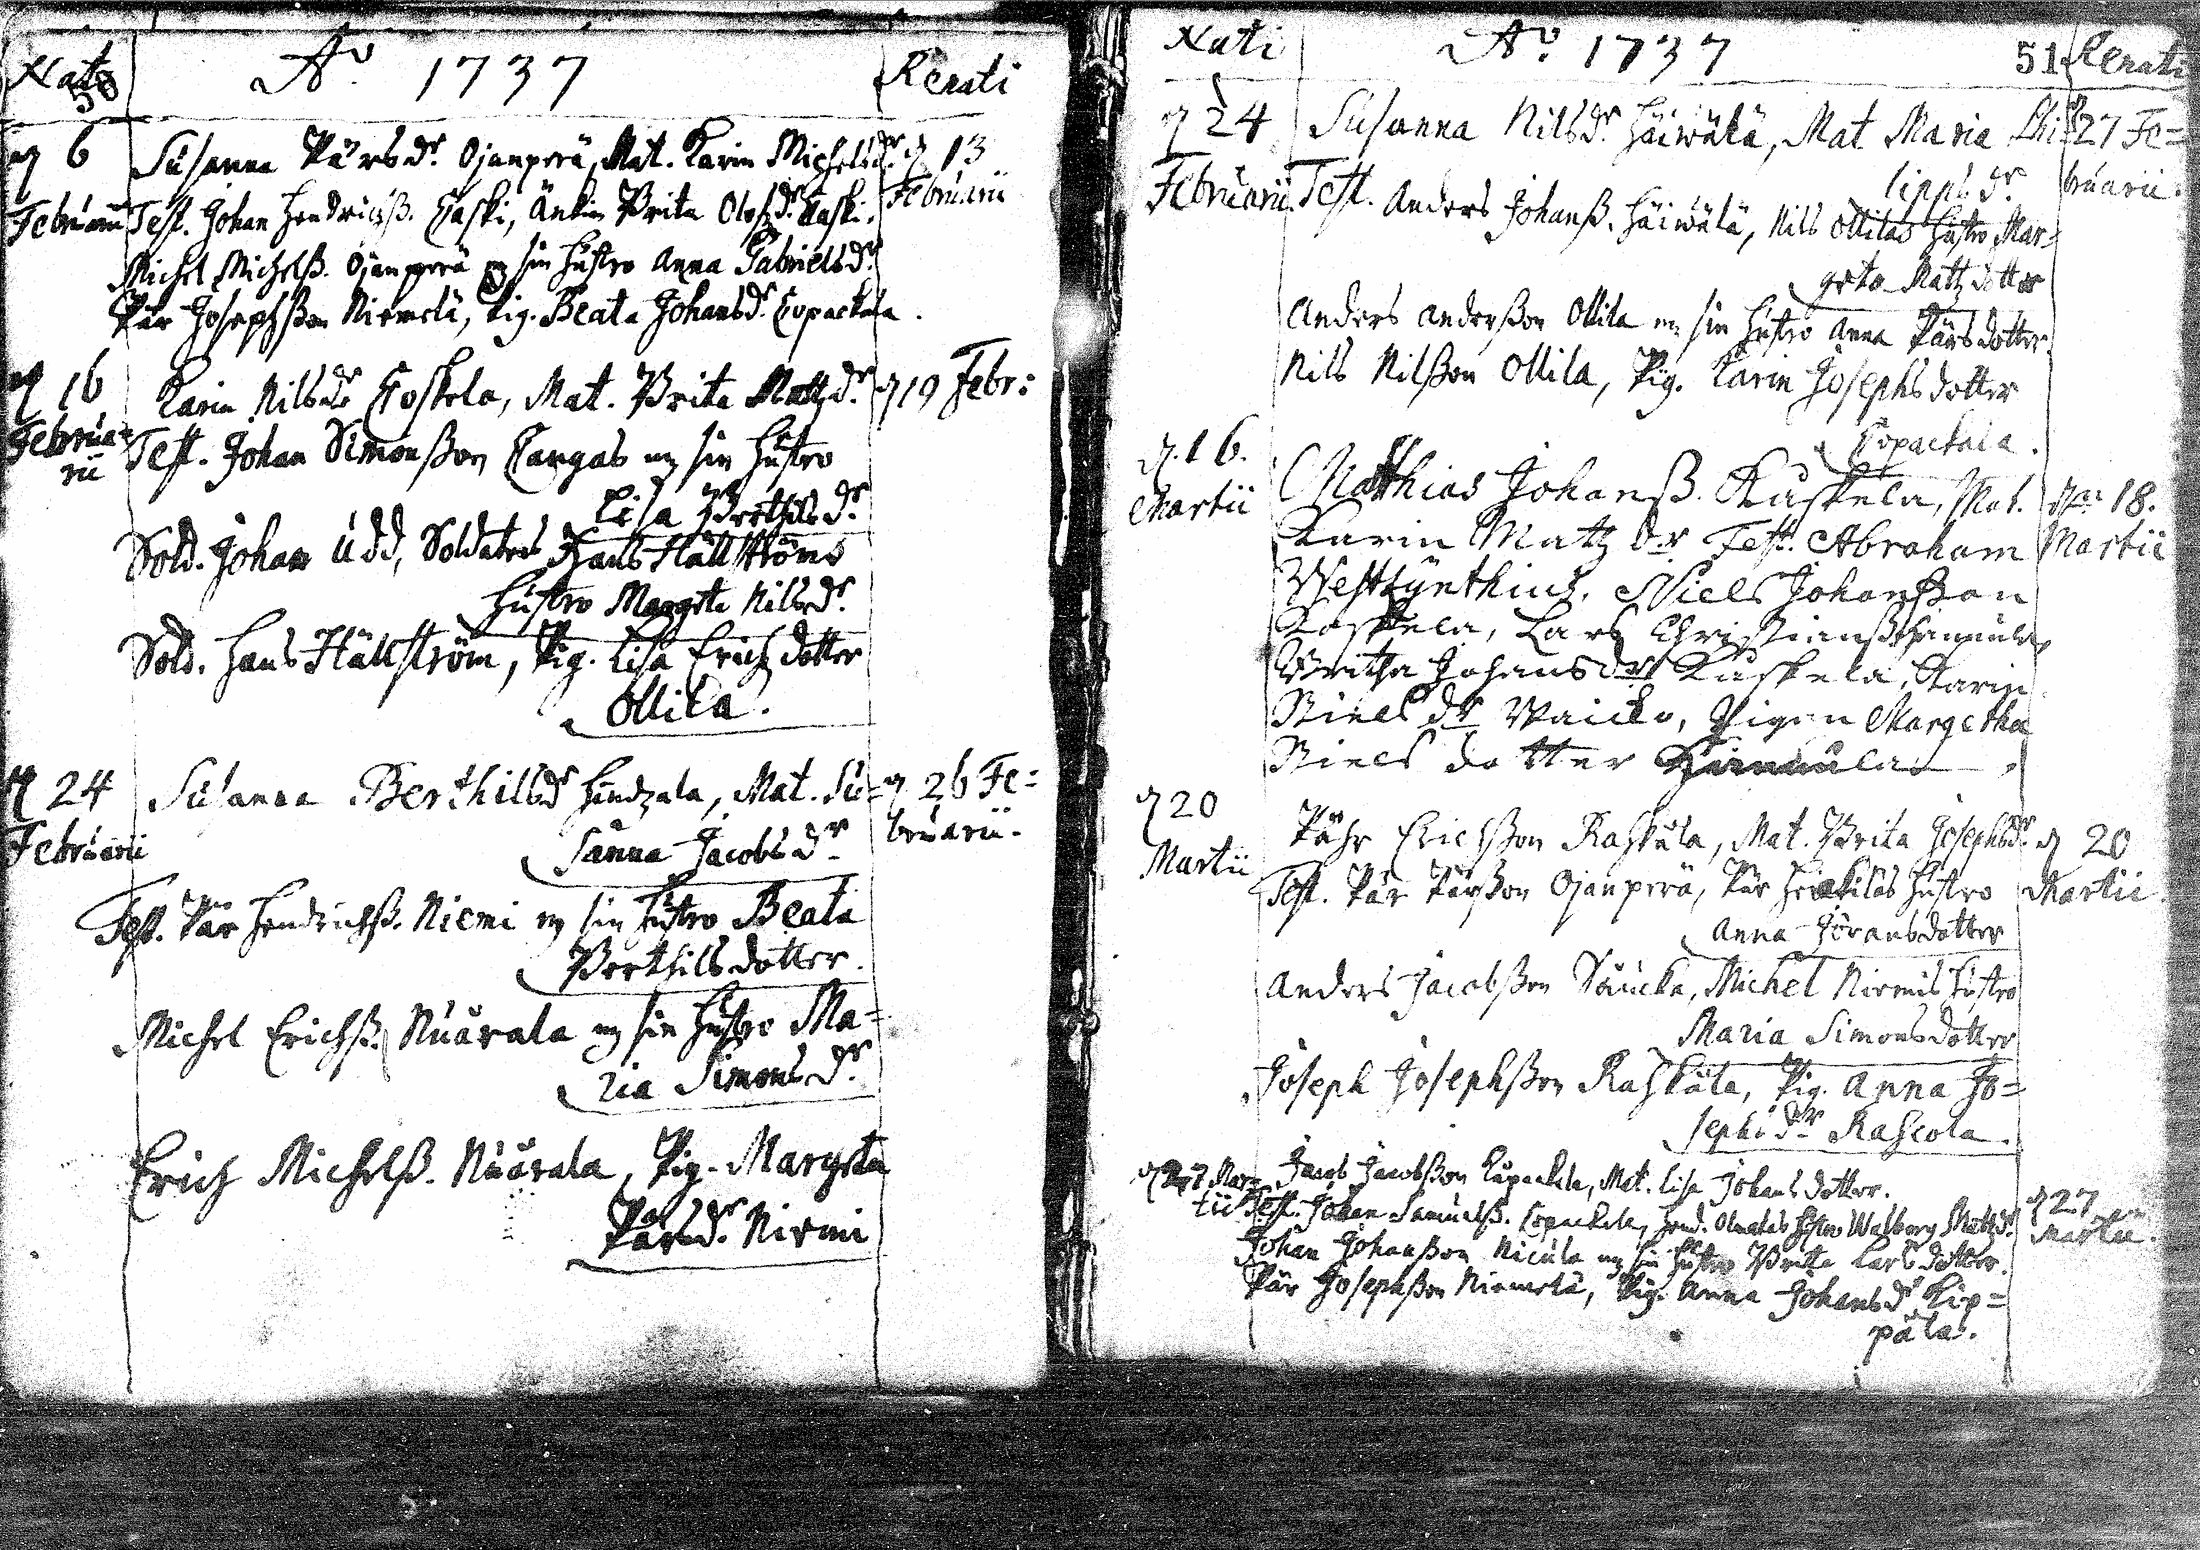 Nati
50
Ao 1737
Renati
d 6
Februarii
Susanna Pärsdr. Ojanperä, Mat. Karin Michelsdr.
d 13
Februarii
Test. Johan Hendricss. Caski, Änkin Brita Olofsdr. Caski.
Michel Michelss. Ojanperä og sin hustro Anna Gabrielsdr.
Pär Josephsson Niemelä, Pig. Beata Johansdr. Copackala.
d 16
Februa=
rii
Karin Nilsdr Coskela, Mat. Brita Mattzdr.
d 19 Febr:
Test. Johan Simonsson Cangas og sin hustro
Lisa Berthilsdr.
Sold. Johan Udd, Soldatens Hans Hällströms
hustro Margeta Nilsdr.
Sold. Hans Hällström, Pig. Lisa Erichdotter
Ollila.
d 24
Februarii
Susanna Berthilsdr Hindzala, Mat. Su=
sanna Jacobsdr
d 26 Fe=
bruarii.
Test. Pär Hendrichss. Niemi og sin hustro Beata
Berthilsdotter.
Michel Erichss. Nuärala og sin hustro Ma=
ria Simonsdr.
Erich Michelss. Nuärala, Pig. Margeta
Pärsdr. Niemi
Nati
Ao. 1737
51
Renati
d 24
Februarii.
Susanna Nilsdr. Häiwälä, Mat Maria Phi=
lippsdr.
d 27 Fe=
bruarii.
Test. Anders Johanss. Häiwälä, Nils Ollilas hustro Mar=
geta Mattzdotter
Anders Andersson Ollila og sin hustro Anna Pärsdotter.
Nils Nilsson Ollila, Pig. Karin Josephsdotter
Copackala.
d. 16.
Martii
Matthias Johanss. Kuskela, Mat.
Den 18.
Martii
Karin Matz dr Test. Abraham
Westzynthius, Niels Johansson
Koskela, Lars Christianss Hannula,
Britha Johansdr Kuskela, Karin
Niels dr Waicko, Pigan Margetha
Niels dotter Hannula
d 20
Martii
Pähr Erichsson Raskula, Mat. Brita Josephsdr.
d 20
Martii.
Test. Pär Pärsson Ojanperä, Pär Heickilas hustro
Anna Göransdotter
Anders Jacobsson Nauska, Michel Niemis hustro
Maria Simonsdotter
Joseph Josephsson Raskula, Pig. Anna Jo=
sephsdr Rascola.
d 27 Mar=
tii
Jacob Jacobsson Kupackala, Mat. Lisa Johansdotter.
d 27
Martii.
Test. Johan Samuelss. Copackala, Hend. Olmalas hustro Walborg Mattzdr.
Johan Johansson Nicula og sin hustro Brita Larsdotter.
Pär Josephsson Niemelä, Pig. Anna Johansdr Kip=
pala.